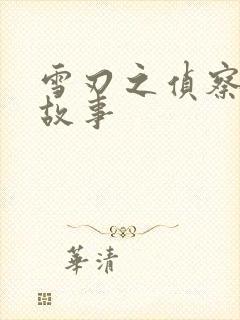 雪刃之偵察
故事
華清